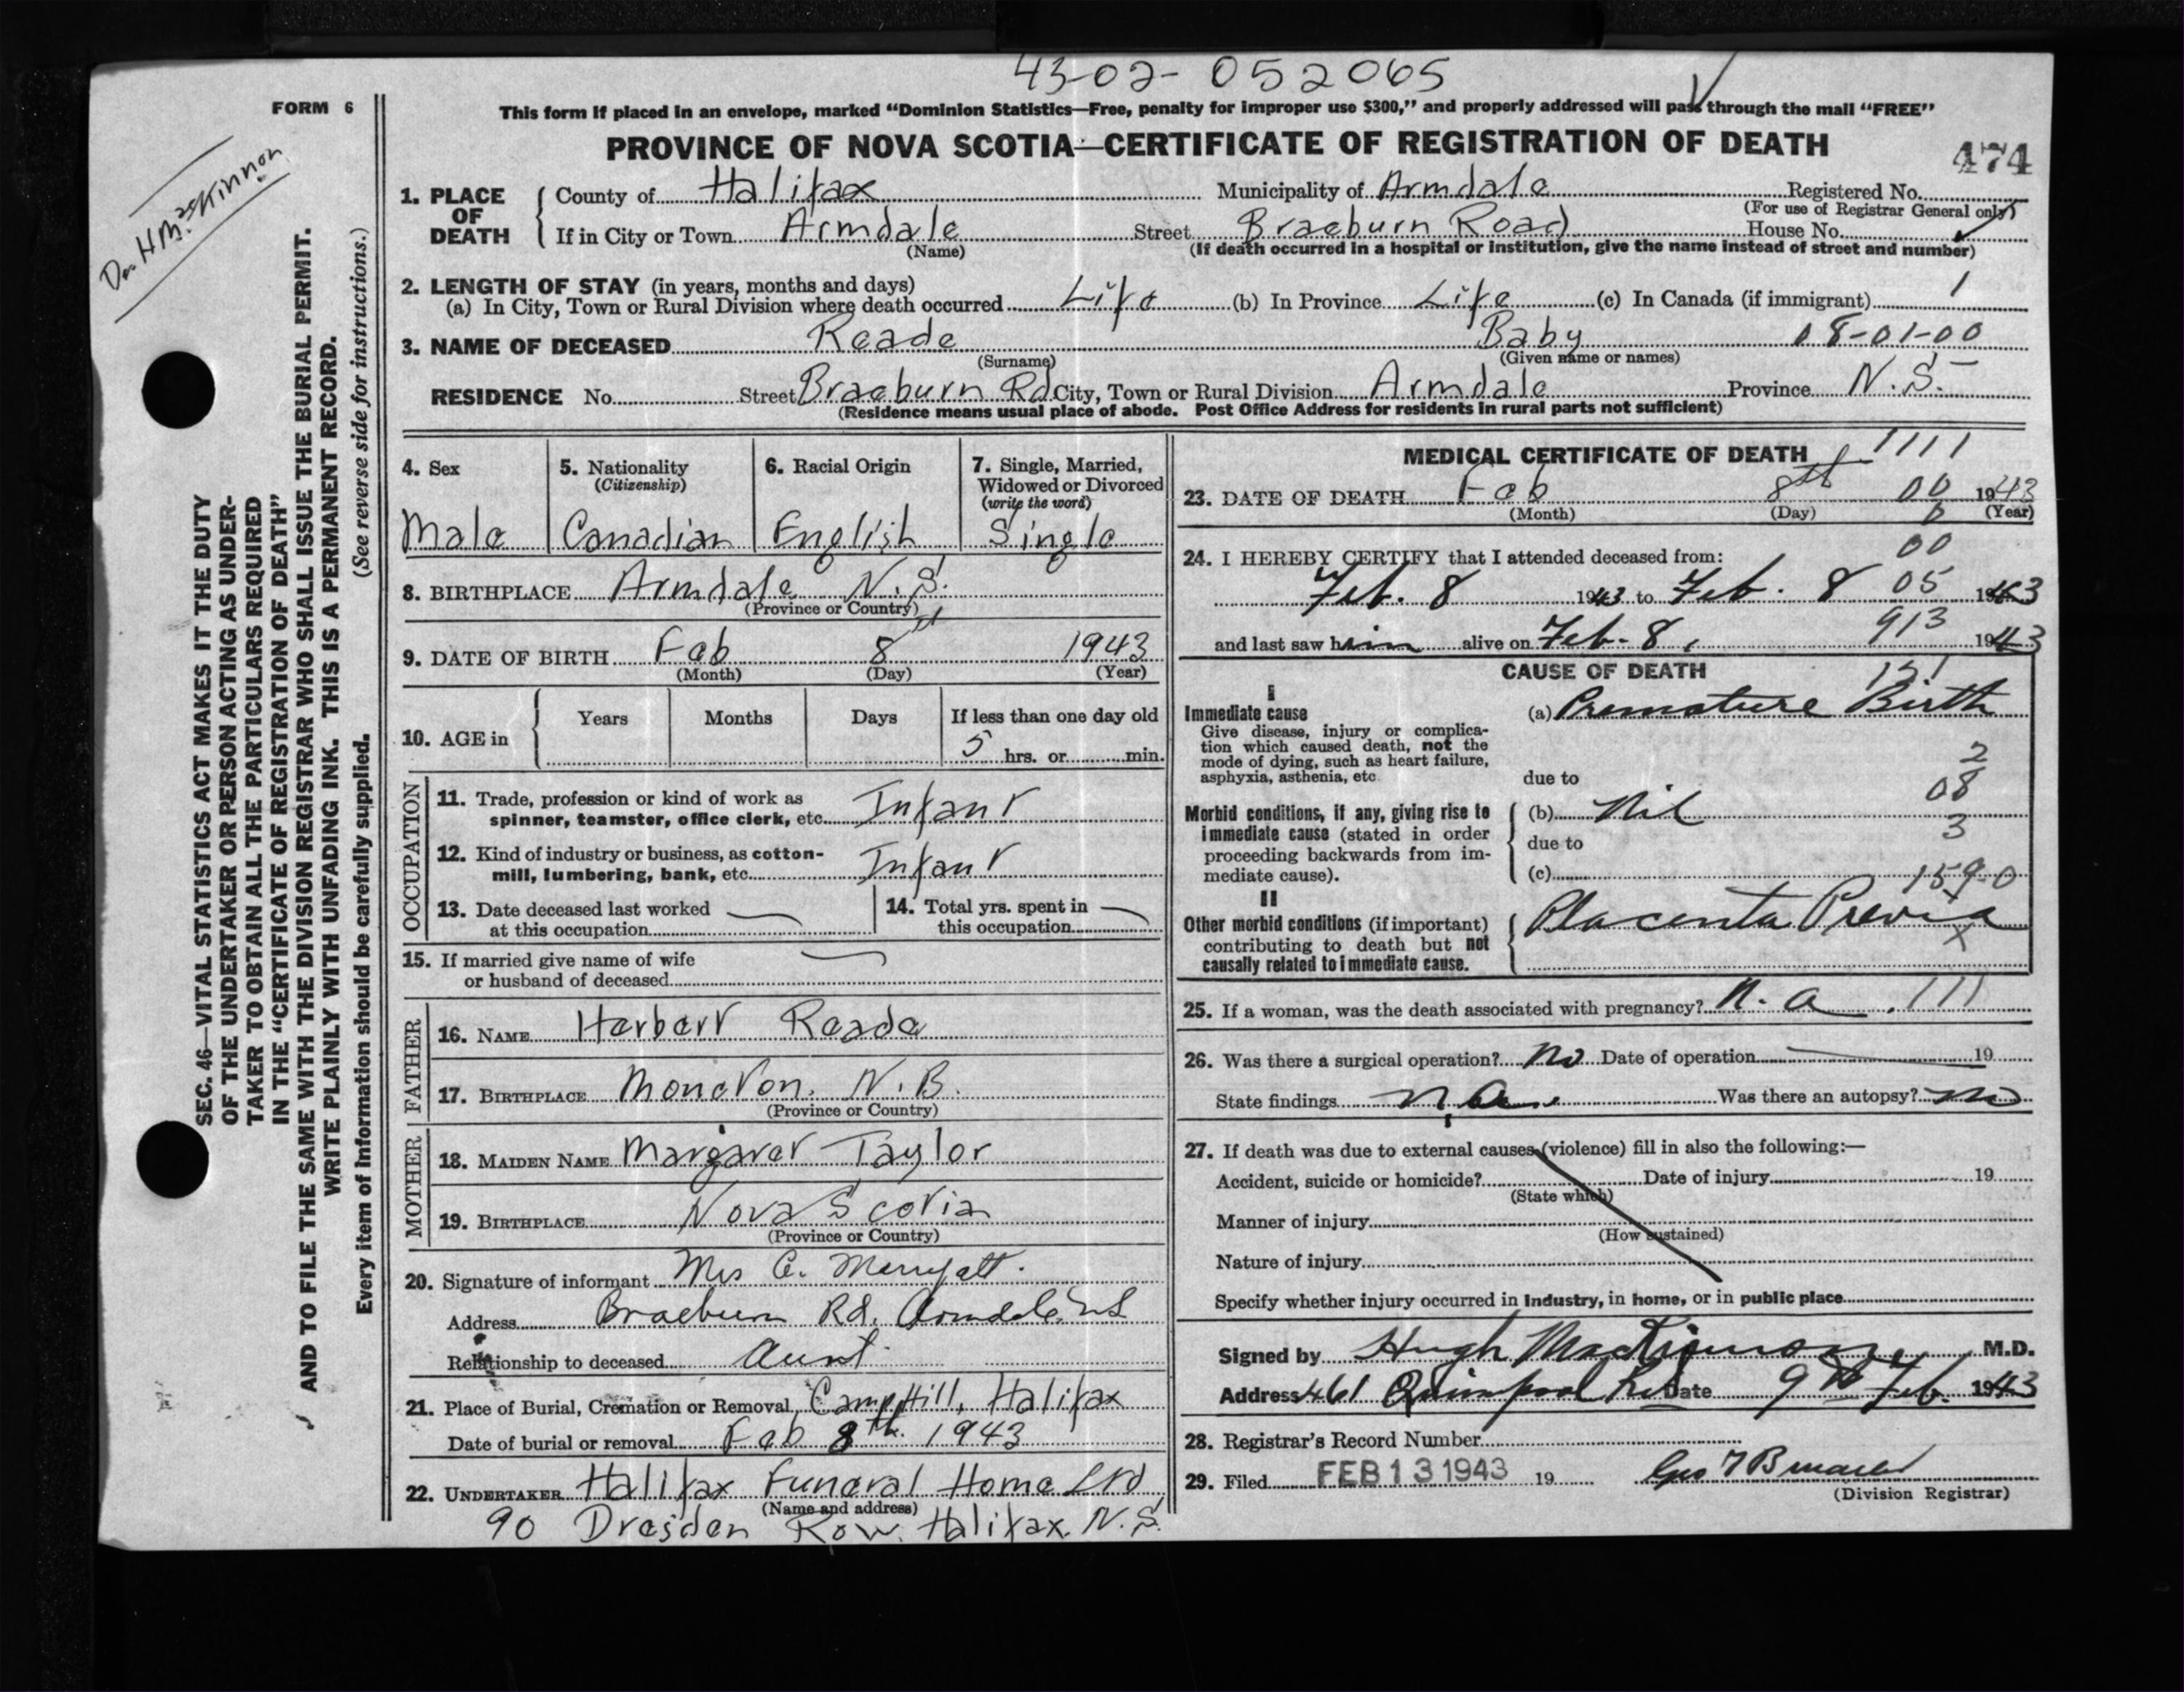 43-02-052065
FORM 6
This form if placed in an envelope, marked “Dominion Statistics—Free, penalty for improper use $300,” and properly addressed will pass through the mail “FREE”
PROVINCE OF NOVA SCOTIA—CERTIFICATE OF REGISTRATION OF DEATH
474
Dr. H. MacKinnon
SEC. 46—VITAL STATISTICS ACT MAKES IT THE DUTY
OF THE UNDERTAKER OR PERSON ACTING AS UNDER-
TAKER TO OBTAIN ALL THE PARTICULARS REQUIRED
IN THE “CERTIFICATE OF REGISTRATION OF DEATH”
AND TO FILE THE SAME WITH THE DIVISION REGISTRAR WHO SHALL ISSUE THE BURIAL PERMIT.
WRITE PLAINLY WITH UNFADING INK. THIS IS A PERMANENT RECORD.
Every item of information should be carefully supplied. (See reverse side for instructions.)
1. PLACE OF DEATH
County of Halifax Municipality of Armdale Registered No.
(For use of Registrar General only)
If in City or Town Armdale Street Braeburn Road House No.
(Name) (If death occurred in a hospital or institution, give the name instead of street and number)
2. LENGTH OF STAY (in years, months and days)
(a) In City, Town or Rural Division where death occurred Life (b) In Province Life (c) In Canada (if immigrant) 1
3. NAME OF DECEASED Reade Baby 08-01-00
(Surname) (Given name or names)
RESIDENCE No. Street Braeburn Rd City, Town or Rural Division Armdale Province N.S.
(Residence means usual place of abode. Post Office Address for residents in rural parts not sufficient)
4. Sex
Male
5. Nationality
(Citizenship)
Canadian
6. Racial Origin
English
7. Single, Married,
Widowed or Divorced
(write the word)
Single
8. BIRTHPLACE Armdale N.S.
(Province or Country)
9. DATE OF BIRTH Feb 8th 1943
(Month) (Day) (Year)
10. AGE in Years Months Days If less than one day old
5 hrs. or min.
OCCUPATION
11. Trade, profession or kind of work as
spinner, teamster, office clerk, etc. Infant
12. Kind of industry or business, as cotton-
mill, lumbering, bank, etc. Infant
13. Date deceased last worked
at this occupation
14. Total yrs. spent in
this occupation
15. If married give name of wife
or husband of deceased
FATHER
16. NAME Herbert Reade
17. BIRTHPLACE Moncton. N.B.
(Province or Country)
MOTHER
18. MAIDEN NAME Margaret Taylor
19. BIRTHPLACE Nova Scotia
(Province or Country)
20. Signature of informant Mrs
Address Braeburn Rd. Armdale NS
Relationship to deceased Aunt
21. Place of Burial, Cremation or Removal Camp Hill, Halifax
Date of burial or removal Feb 8th. 1943
22. UNDERTAKER Halifax Funeral Home Ltd
(Name and address)
90 Dresden Row. Halifax. N.S.
MEDICAL CERTIFICATE OF DEATH 1111
23. DATE OF DEATH Feb 8th 00 1943
(Month) (Day) (Year)
24. I HEREBY CERTIFY that I attended deceased from: 00
Feb. 8 1943 to Feb. 8 05 1943
and last saw him alive on Feb. 8, 913 1943
CAUSE OF DEATH 151
I
Immediate cause
Give disease, injury or complica-
tion which caused death, not the
mode of dying, such as heart failure,
asphyxia, asthenia, etc
(a) Premature Birth
2
due to
08
Morbid conditions, if any, giving rise to
immediate cause (stated in order
proceeding backwards from im-
mediate cause).
(b) Nil
3
due to
(c) 159-0
II
Other morbid conditions (if important)
contributing to death but not
causally related to immediate cause.
Placenta Previa
X
25. If a woman, was the death associated with pregnancy? N. A. 111
26. Was there a surgical operation? No Date of operation 19
State findings N.A. Was there an autopsy? No
27. If death was due to external causes (violence) fill in also the following:—
Accident, suicide or homicide? Date of injury 19
(State which)
Manner of injury
(How sustained)
Nature of injury
Specify whether injury occurred in Industry, in home, or in public place
Signed by Hugh MacKinnon M.D.
Address 461 Quinpool Rd Date 9th Feb. 1943
28. Registrar’s Record Number
29. Filed FEB 13 1943 19
(Division Registrar)